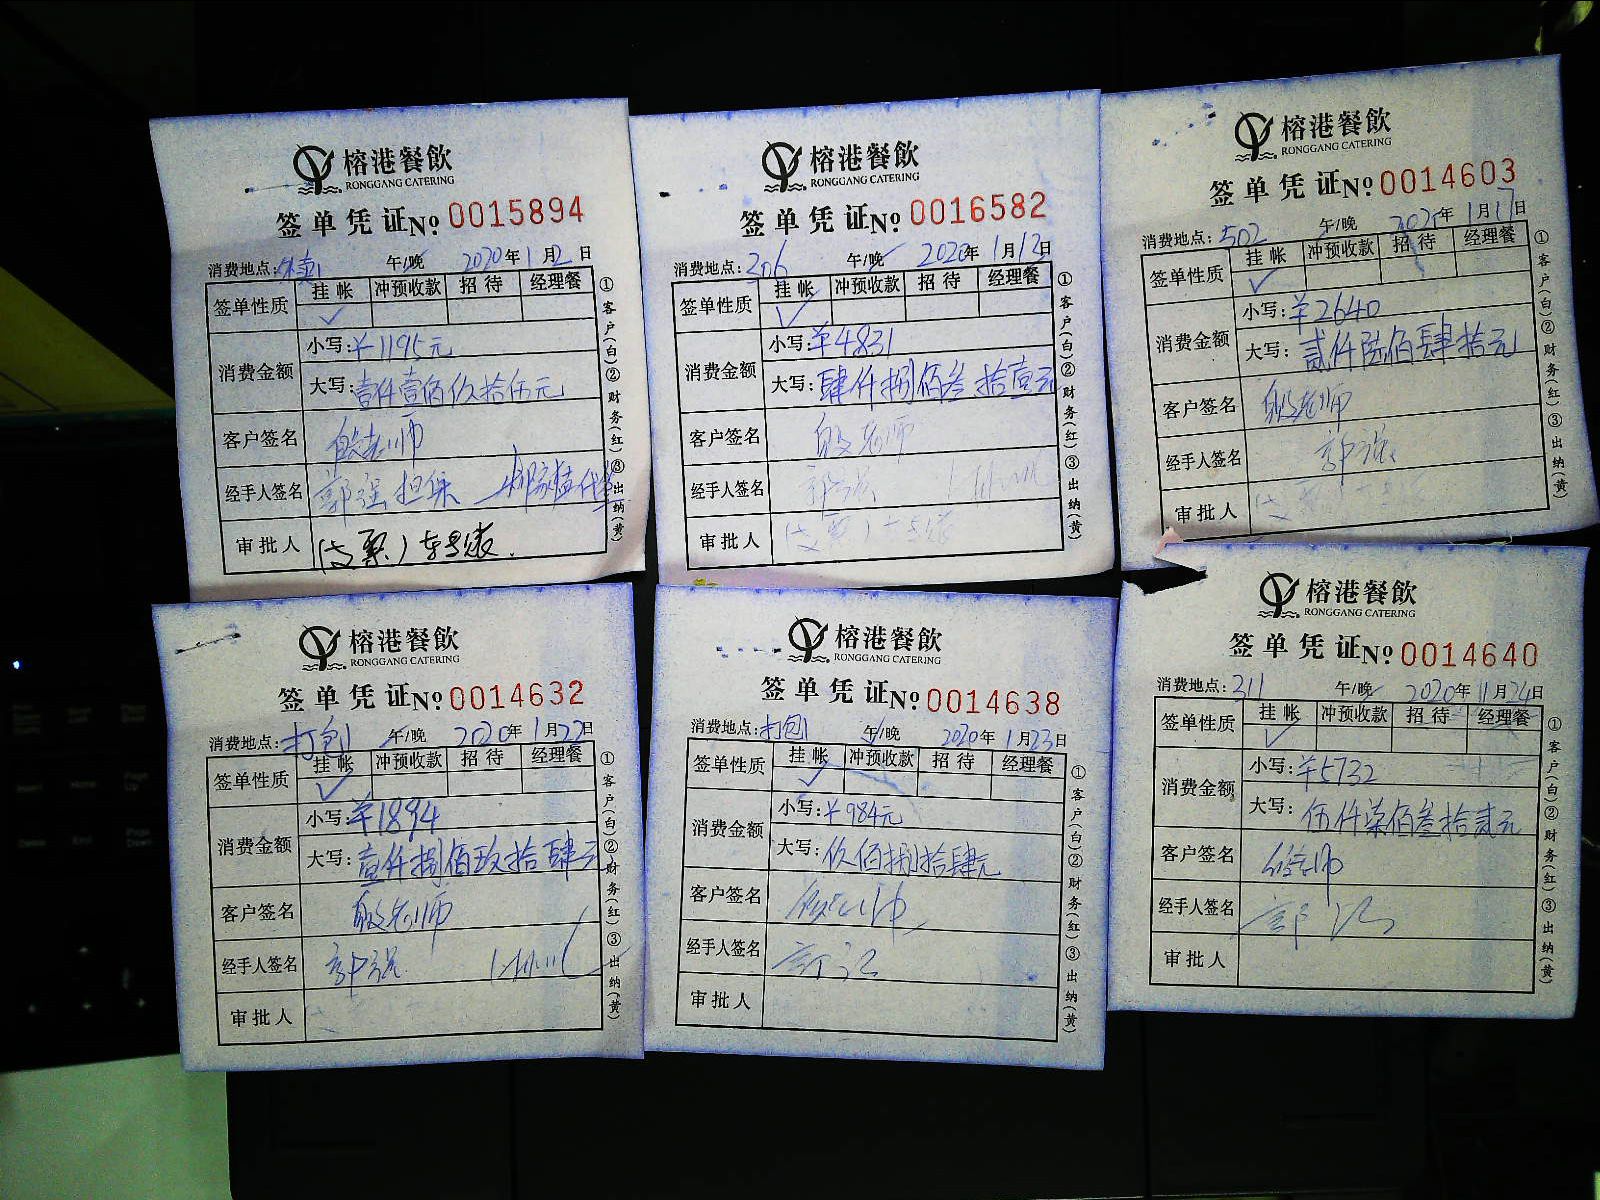 榕港餐飲
RONGGANG CATERING
签单凭证No 0015894
消费地点:外卖1 午/晚 2020年1月2日
签单性质 挂帐 冲预收款 招待 经理餐
消费金额
小写:¥1195元
大写:壹仟壹佰玖拾伍元
客户签名 殷老师
经手人签名 郭强担保
审批人 (支票)
①客户(白)②财务(红)③出纳(黄)
榕港餐飲
RONGGANG CATERING
签单凭证No 0016582
消费地点:306 午/晚 2020年1月12日
签单性质 挂帐 冲预收款 招待 经理餐
消费金额
小写:¥4831
大写:肆仟捌佰叁拾壹元
客户签名 殷老师
经手人签名 郭强
审批人 (支票)
①客户(白)②财务(红)③出纳(黄)
榕港餐飲
RONGGANG CATERING
签单凭证No 0014603
消费地点:502 午/晚 2020年1月17日
签单性质 挂帐 冲预收款 招待 经理餐
消费金额
小写:¥2640
大写:贰仟陆佰肆拾元
客户签名 殷老师
经手人签名 郭强
审批人
①客户(白)②财务(红)③出纳(黄)
榕港餐飲
RONGGANG CATERING
签单凭证No 0014632
消费地点:打包1 午/晚 2020年1月22日
签单性质 挂帐 冲预收款 招待 经理餐
消费金额
小写:¥1894
大写:壹仟捌佰玖拾肆元
客户签名 殷老师
经手人签名 郭强
审批人
①客户(白)②财务(红)③出纳(黄)
榕港餐飲
RONGGANG CATERING
签单凭证No 0014638
消费地点:打包1 午/晚 2020年1月23日
签单性质 挂帐 冲预收款 招待 经理餐
消费金额
小写:¥984元
大写:玖佰捌拾肆元
客户签名
经手人签名
审批人
①客户(白)②财务(红)③出纳(黄)
榕港餐飲
RONGGANG CATERING
签单凭证No 0014640
消费地点:311 午/晚 2020年11月24日
签单性质 挂帐 冲预收款 招待 经理餐
消费金额
小写:¥5732
大写:伍仟柒佰叁拾贰元
客户签名
经手人签名
审批人
①客户(白)②财务(红)③出纳(黄)